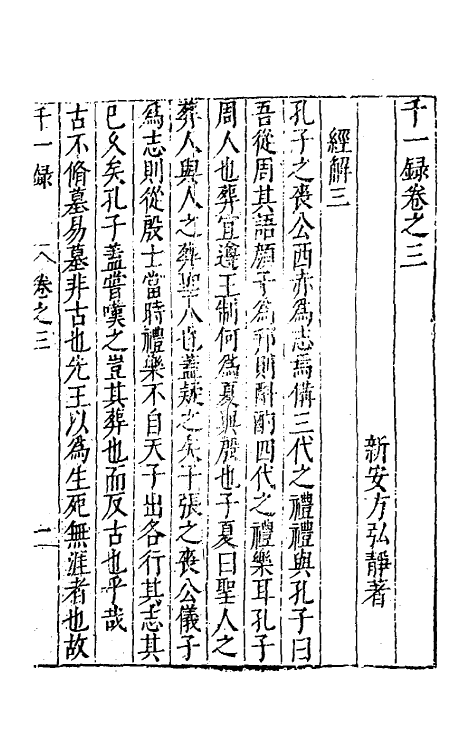 千一録卷之三
新安方弘靜著
經解三
孔子之喪公西赤為志焉備三代之禮禮與孔子曰
吾從周其語顔子為邦則斟酌四代之禮樂耳孔子
周人也葬宜遵王制何為夏與殷也子夏曰聖人之
葬人與人之葬聖人也蓋疑之矣子張之喪公儀子
為志則從殷士當時禮樂不自天子出各行其志其
已久矣孔子蓋嘗嘆之豈其葬也而反古也乎哉
古不脩墓易墓非古也先王以為生死無涯者也故
千一録
卷之三
一